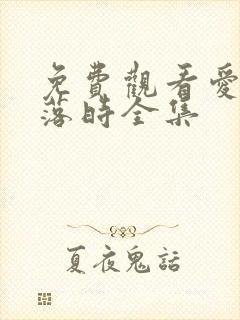 免費觀看愛
落時全集
夏夜鬼話